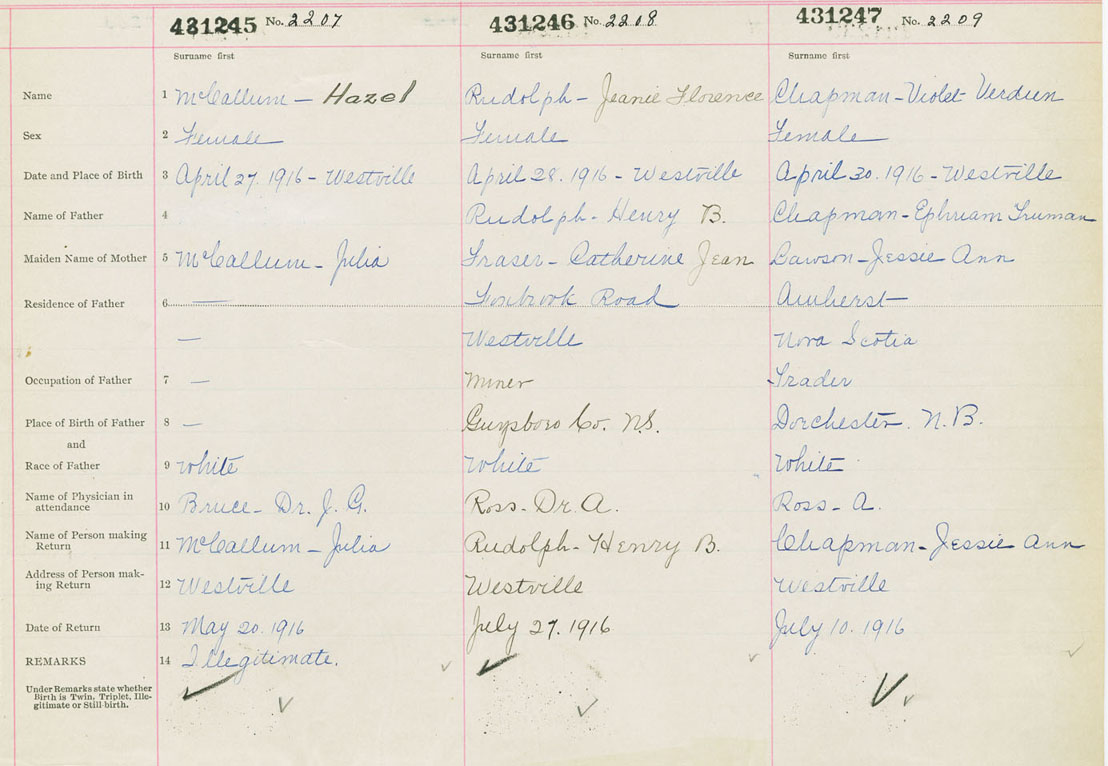 431245 No. 2207 431246 No. 2208 431247 No. 2209
Surname first Surname first Surname first
Name 1 McCallum - Hazel Rudolph - Jeanie Florence Chapman - Violet Verdun
Sex 2 Female Female Female
Date and Place of Birth 3 April 27. 1916 - Westville April 28. 1916 - Westville April 30. 1916 - Westville
Name of Father 4 Rudolph - Henry B. Chapman - Ephriam Truman
Maiden Name of Mother 5 McCallum - Julia Fraser - Catherine Jean Lawson - Jessie Ann
Residence of Father 6 — Foxbrook Road Amherst
— Westville Nova Scotia
Occupation of Father 7 — Miner Trader
Place of Birth of Father 8 — Guysboro Co. N.S. Dorchester. N.B.
and
Race of Father 9 White White White
Name of Physician in attendance 10 Bruce - Dr. J. G. Ross - Dr. A. Ross - A.
Name of Person making Return 11 McCallum - Julia Rudolph - Henry B. Chapman - Jessie Ann
Address of Person mak-ing Return 12 Westville Westville Westville
Date of Return 13 May 20. 1916 July 27. 1916 July 10. 1916
REMARKS 14 Illegitimate.
Under Remarks state whether
Birth is Twin, Triplet, Ille-
gitimate or Still-birth.